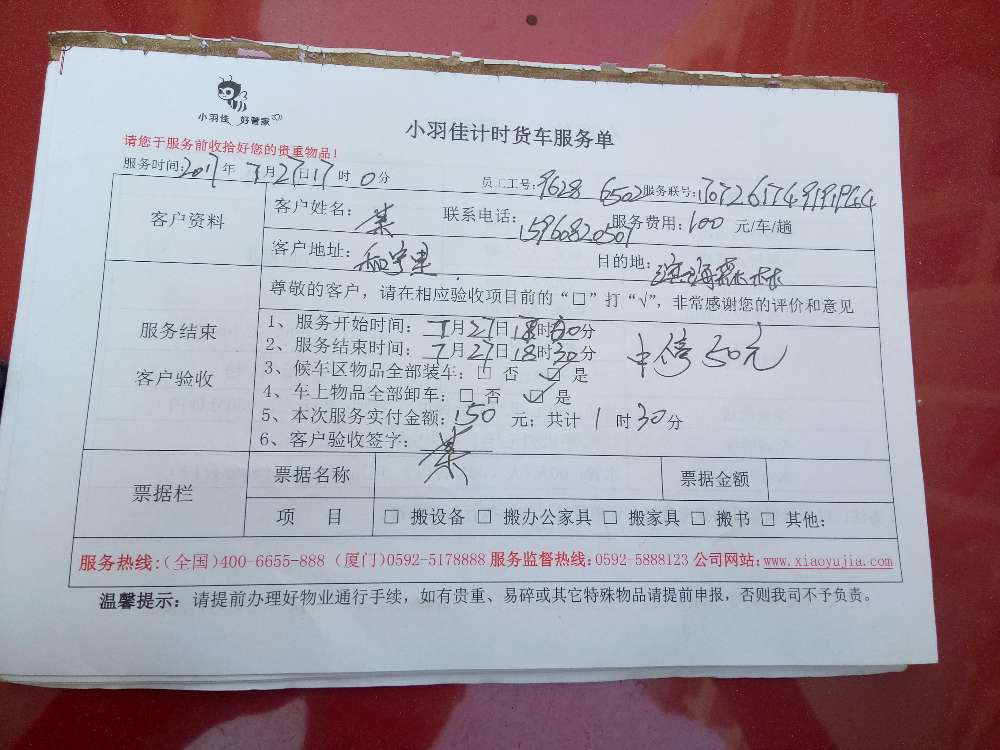 小羽佳 好管家
小羽佳计时货车服务单
请您于服务前收拾好您的贵重物品!
服务时间:2017年7月27日17时0分 员工工号:9628 6502 服务联号:
客户资料 客户姓名:叶 联系电话:15960820509 服务费用:100元/车/趟
客户地址: 目的地:滨海森林
尊敬的客户，请在相应验收项目前的“□”打“√”，非常感谢您的评价和意见
服务结束
客户验收
1、服务开始时间：7月27日时分
2、服务结束时间：7月27日18时30分 中停50元
3、候车区物品全部装车：□ 否 ☑ 是
4、车上物品全部卸车：□ 否 ☑ 是
5、本次服务实付金额：150元；共计1时30分
6、客户验收签字：
票据栏 票据名称 票据金额
项 目 □ 搬设备 □ 搬办公家具 □ 搬家具 □ 搬书 □ 其他：
服务热线:(全国)400-6655-888 (厦门)0592-5178888 服务监督热线:0592-5888123 公司网站:www.xiaoyujia.com
温馨提示：请提前办理好物业通行手续，如有贵重、易碎或其它特殊物品请提前申报，否则我司不予负责。